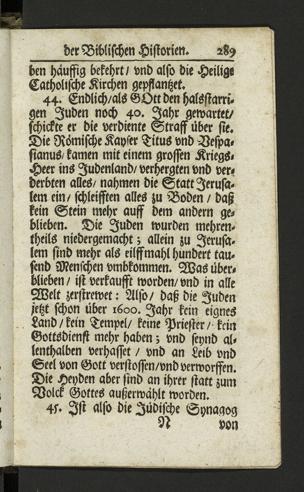 der Biblischen Historien. 289
ben häuffig bekehrt/ vnd also die Heilige
Catholische Kirchen gepflantzet.
44. Endlich/als GOtt den halsstarri-
gen Juden noch 40. Jahr gewartet/
schickte er die verdiente Straff über sie.
Die Römische Kayser Titus vnd Vespa-
sianus/kamen mit einem grossen Kriegs-
Heer ins Judenland/verhergten vnd ver-
derbten alles/ nahmen die Statt Jerusa-
lem ein/ schleifften alles zu Boden/ daß
kein Stein mehr auff dem andern ge-
blieben. Die Juden wurden mehren-
theils niedergemacht; allein zu Jerusa-
lem sind mehr als eilffmahl hundert tau-
send Menschen vmbkommen. Was über-
blieben/ ist verkaufft worden/vnd in alle
Welt zerstrewet: Also/ daß die Juden
jetzt schon über 1600. Jahr kein eignes
Land/ kein Tempel/ keine Priester/ kein
Gottsdienst mehr haben; vnd seynd al-
lenthalben verhasset/ vnd an Leib vnd
Seel von Gott verstossen/vnd verworffen.
Die Heyden aber sind an ihrer statt zum
Volck Gottes außerwählt worden.
45. Ist also die Jüdische Synagog
N von